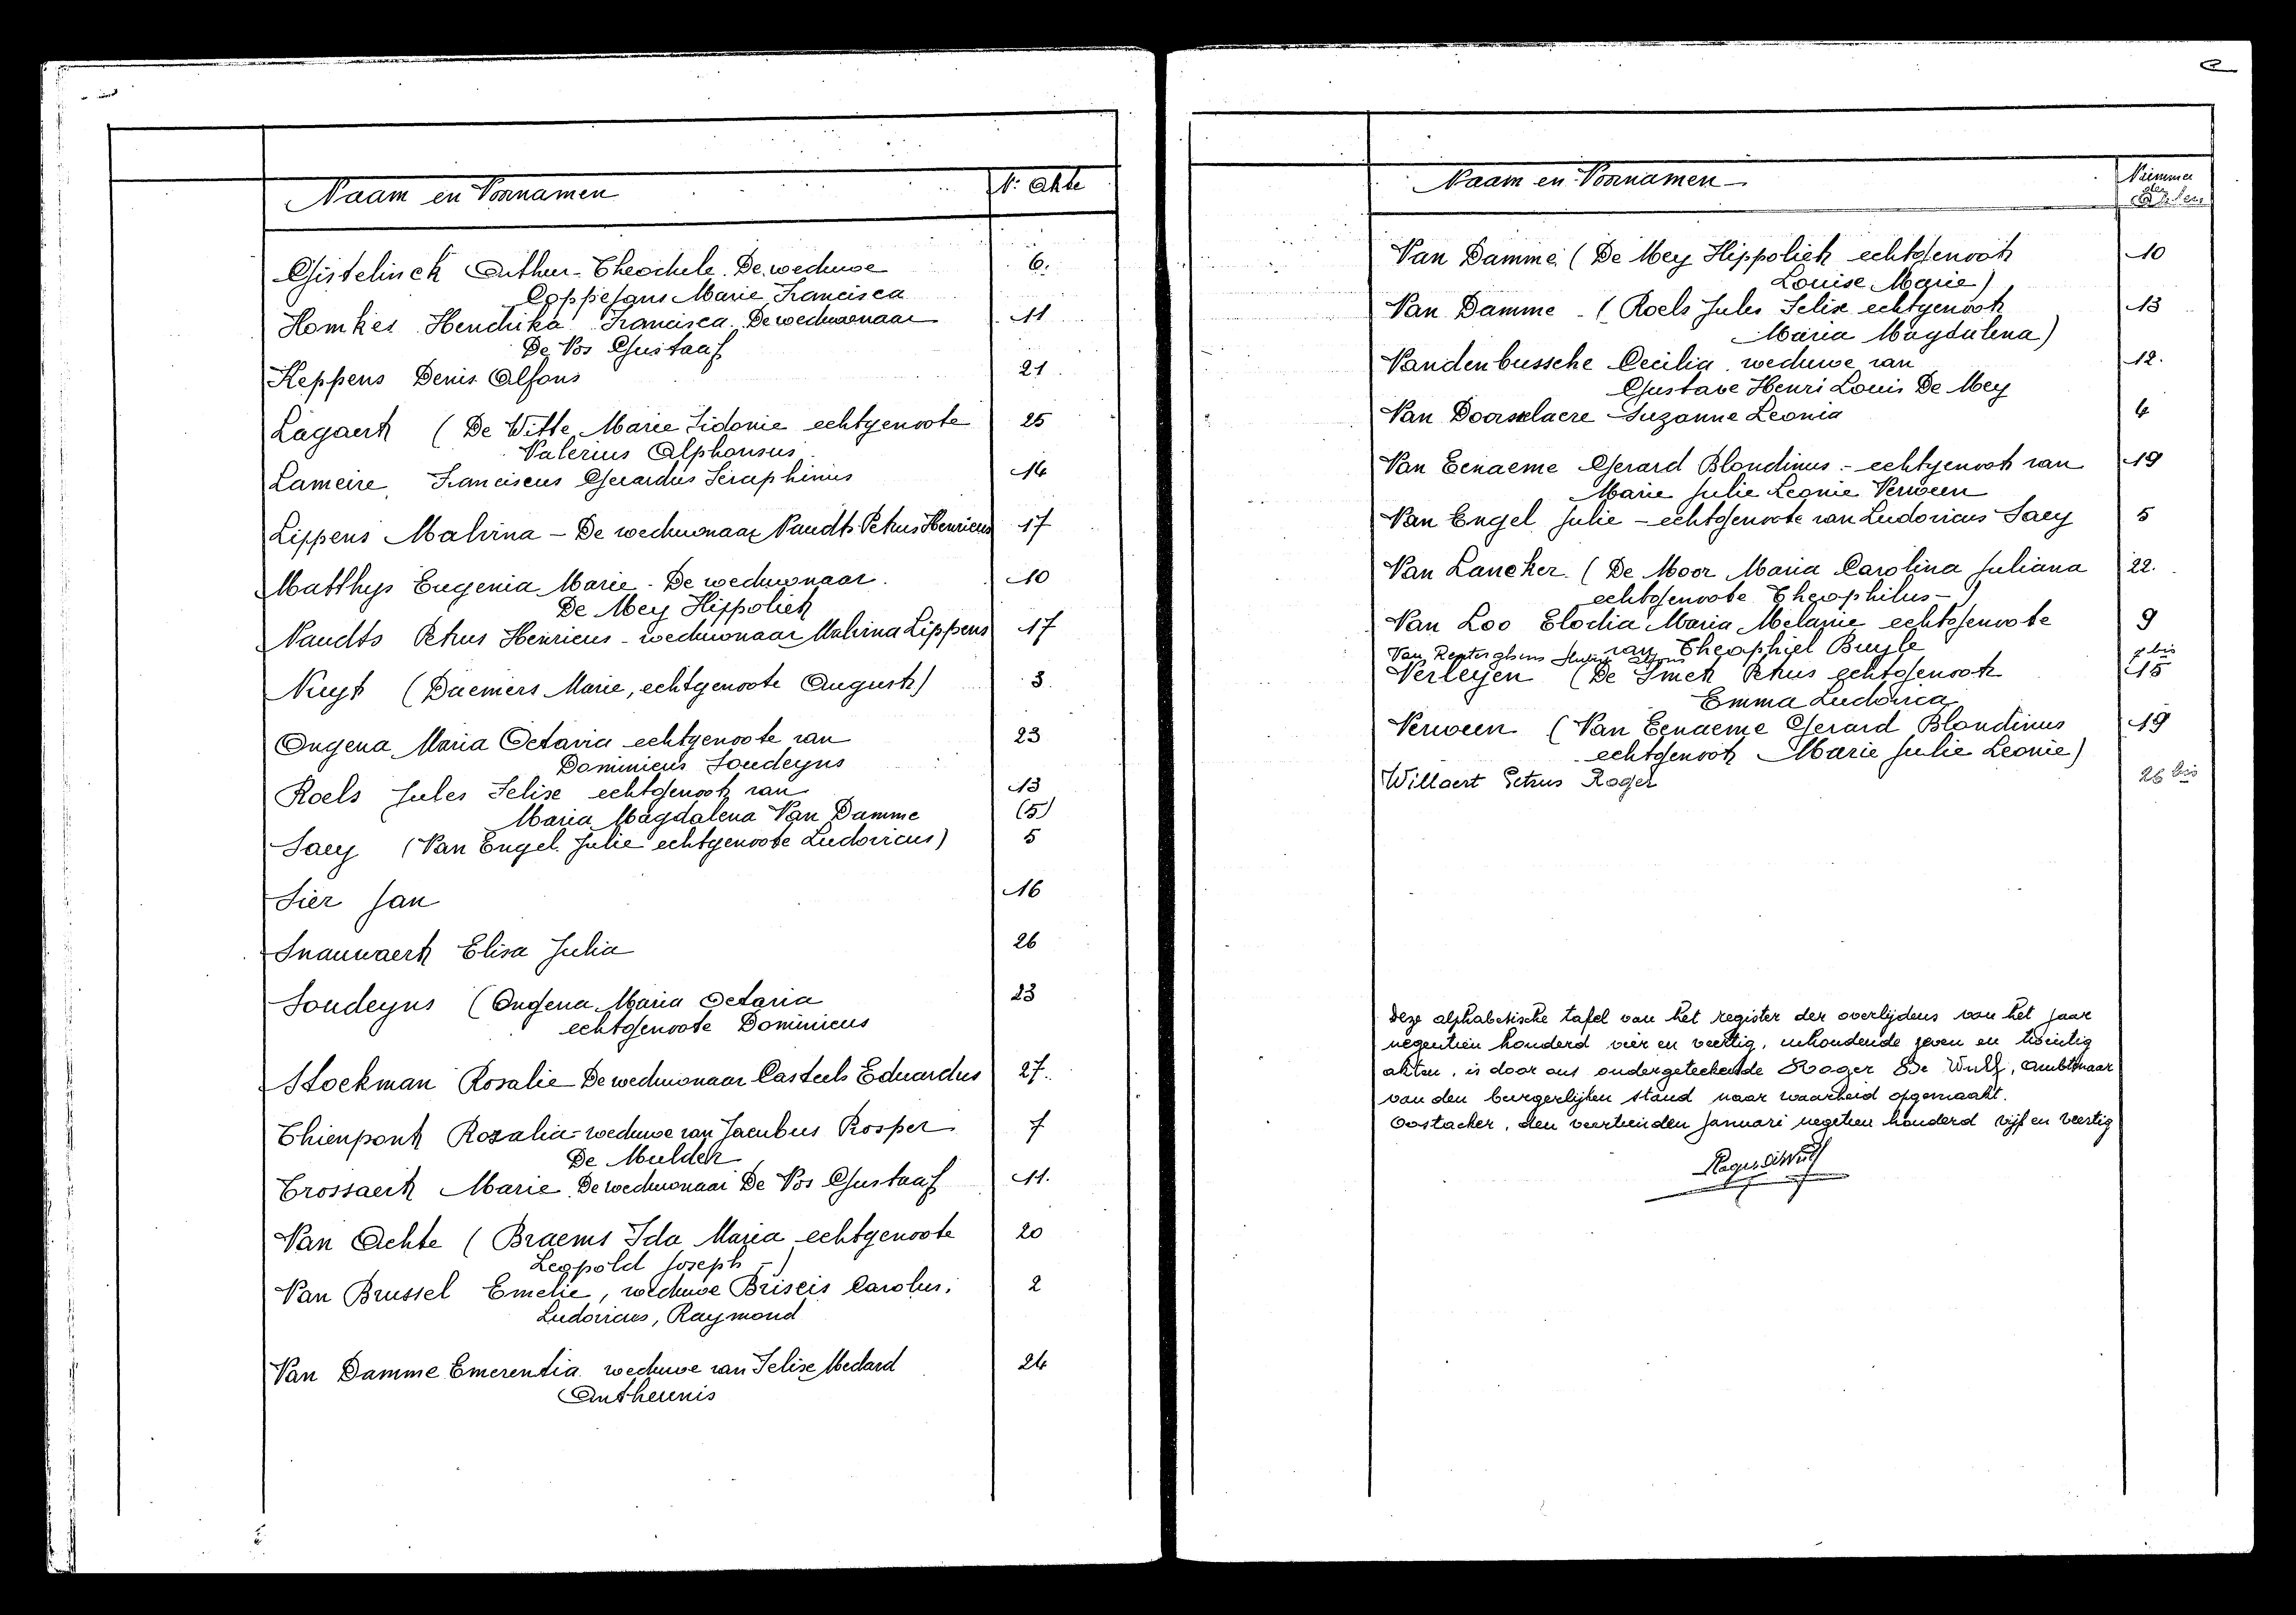 Naam en Voornamen N: Akte
Gistelinck Arthur-Theophile. De weduwe 6.
Coppejans Marie Francisca
Homkes Hendrika Francisca De weduwnaar 11
De Vos Gustaaf
Keppens Denis Alfons 21
Lagaert (De Witte Marie Sidonie echtgenoote 25
Valerius Alphonsus
Lameire, Franciscus Gerardus Seraphinus 14
Lippens Malvina - De weduwnaar Naudts Petrus Henricus 17
Matthys Eugenia Marie - De weduwnaar. 10
De Mey Hippoliet
Naudts Petrus Henricus - weduwnaar Malvina Lippens 17
Nuyt (Daemers Marie, echtgenoote August) 3.
Ongena Maria Octavia echtgenoote van 23
Dominicus Soudeyns
Roels Jules Felix echtgenoot van 13
Maria Magdalena Van Damme (5)
Saey (Van Engel Julie echtgenoote Ludovicus) 5
Sier Jan 16
Snauwaert Elisa Julia 26
Soudeyns (Ongena Maria Octavia 23
echtgenoote Dominicus
Stockman Rosalie De weduwnaar Casteels Eduardus 27.
Thienpont Rozalia - weduwe van Jacobus Prosper 7
De Mulder
Trossaert Marie De weduwnaar De Vos Gustaaf 11.
Van Achte (Braems Ida Maria echtgenoote 20
Leopold Joseph -)
Van Brussel Emelie, weduwe Briseis Carolus, 2
Ludovicus, Raymond
Van Damme Emerentia weduwe van Felix Medard 24
Antheunis
Naam en Voornamen - Nummer
der
Akten
Van Damme (De Mey Hippoliet echtgenoot 10
Louise Marie)
Van Damme - (Roels Jules Felix echtgenoot 13
Maria Magdalena)
Vandenbussche Cecilia weduwe van 12.
Gustave Henri Louis De Mey
Van Doorselaere Suzanne Leonia 4
Van Eenaeme Gerard Blondinus - echtgenoot van 19
Marie Julie Leonie Verween
Van Engel Julie - echtgenoote van Ludovicus Saey 5
Van Lancker (De Moor Maria Carolina Juliana 22.
echtgenoote Theophilus -)
Van Loo Elodia Maria Melanie echtgenoote 9
van Theophiel Buyle
Van Renterghem Alfons bis
Verleyen (De Smet Petrus echtgenoot 15
Emma Ludovica
Verween (Van Eenaeme Gerard Blondinus 19
echtgenoot Marie Julie Leonie)
Willaert Petrus Roger 26 bis
Deze alphabetische tafel van het register der overlijdens van het jaar
negentien honderd vier en veertig, inhoudende zeven en twintig
akten, is door ons ondergeteekende Roger De Wulf, Ambtenaar
van den burgerlijken stand naar waarheid opgemaakt.
Oostacker, den veertienden Januari negetien honderd vijf en veertig
Roger De Wulf